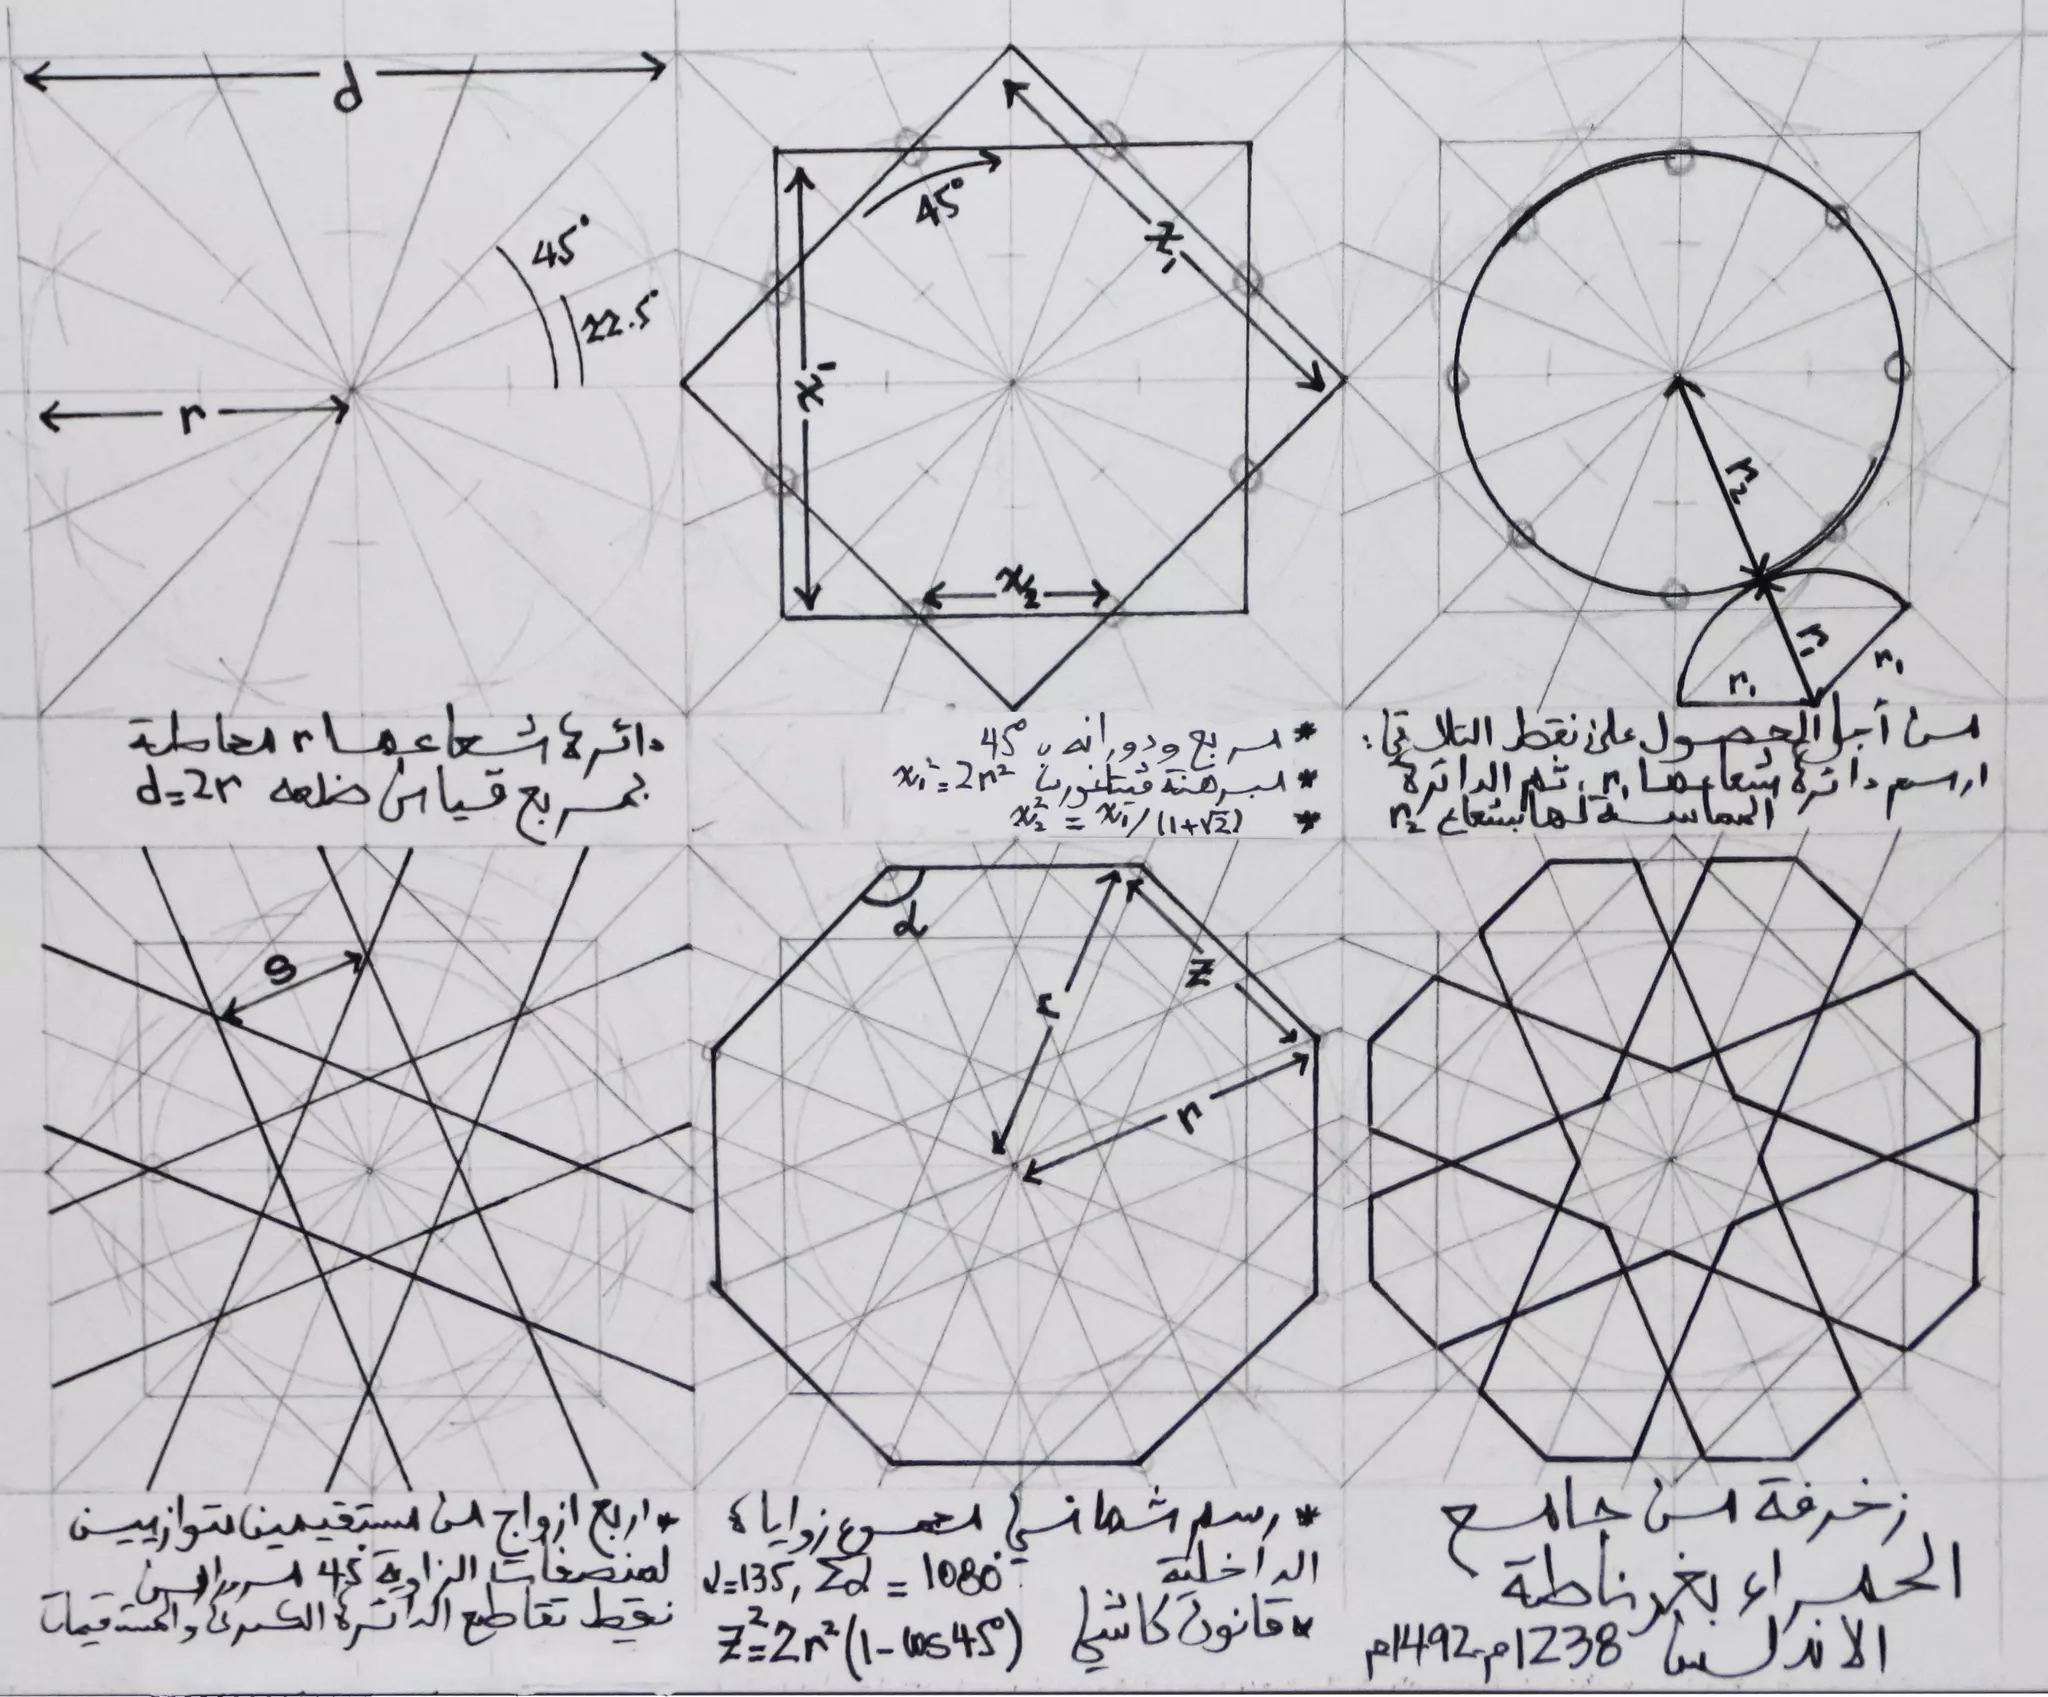 d
45°
22.5°
r
دائرة شعاعها r محاطة
بمربع قياس ضلعه d=2r
45°
x₁
x₁
x₂
* مربع ودورانه ب 45°
* لمبرهنة فيتاغورت x₁²=2r²
* x₂² = x₁/(1+√2)
r₂
r₁
r₁
r₁
من أجل الحصول على نقط التلاقي:
ارسم دائرة شعاعها r₁، ثم الدائرة
المماسة لها بشعاع r₂
g
* اربع ازواج من مستقيمين متوازيين
لمنصفات الزاوية 45
نقط تقاطع الدائرة الكبرى والمستقيمات
α
r
z
r
* رسم ثماني مجموع زواياه
الداخلية α=135, Σα = 1080°
* قانون كاشي z²=2r²(1-cos45°)
زخرفة من جامع
الحمراء بغرناطة
الاندلس 1238م-1492م